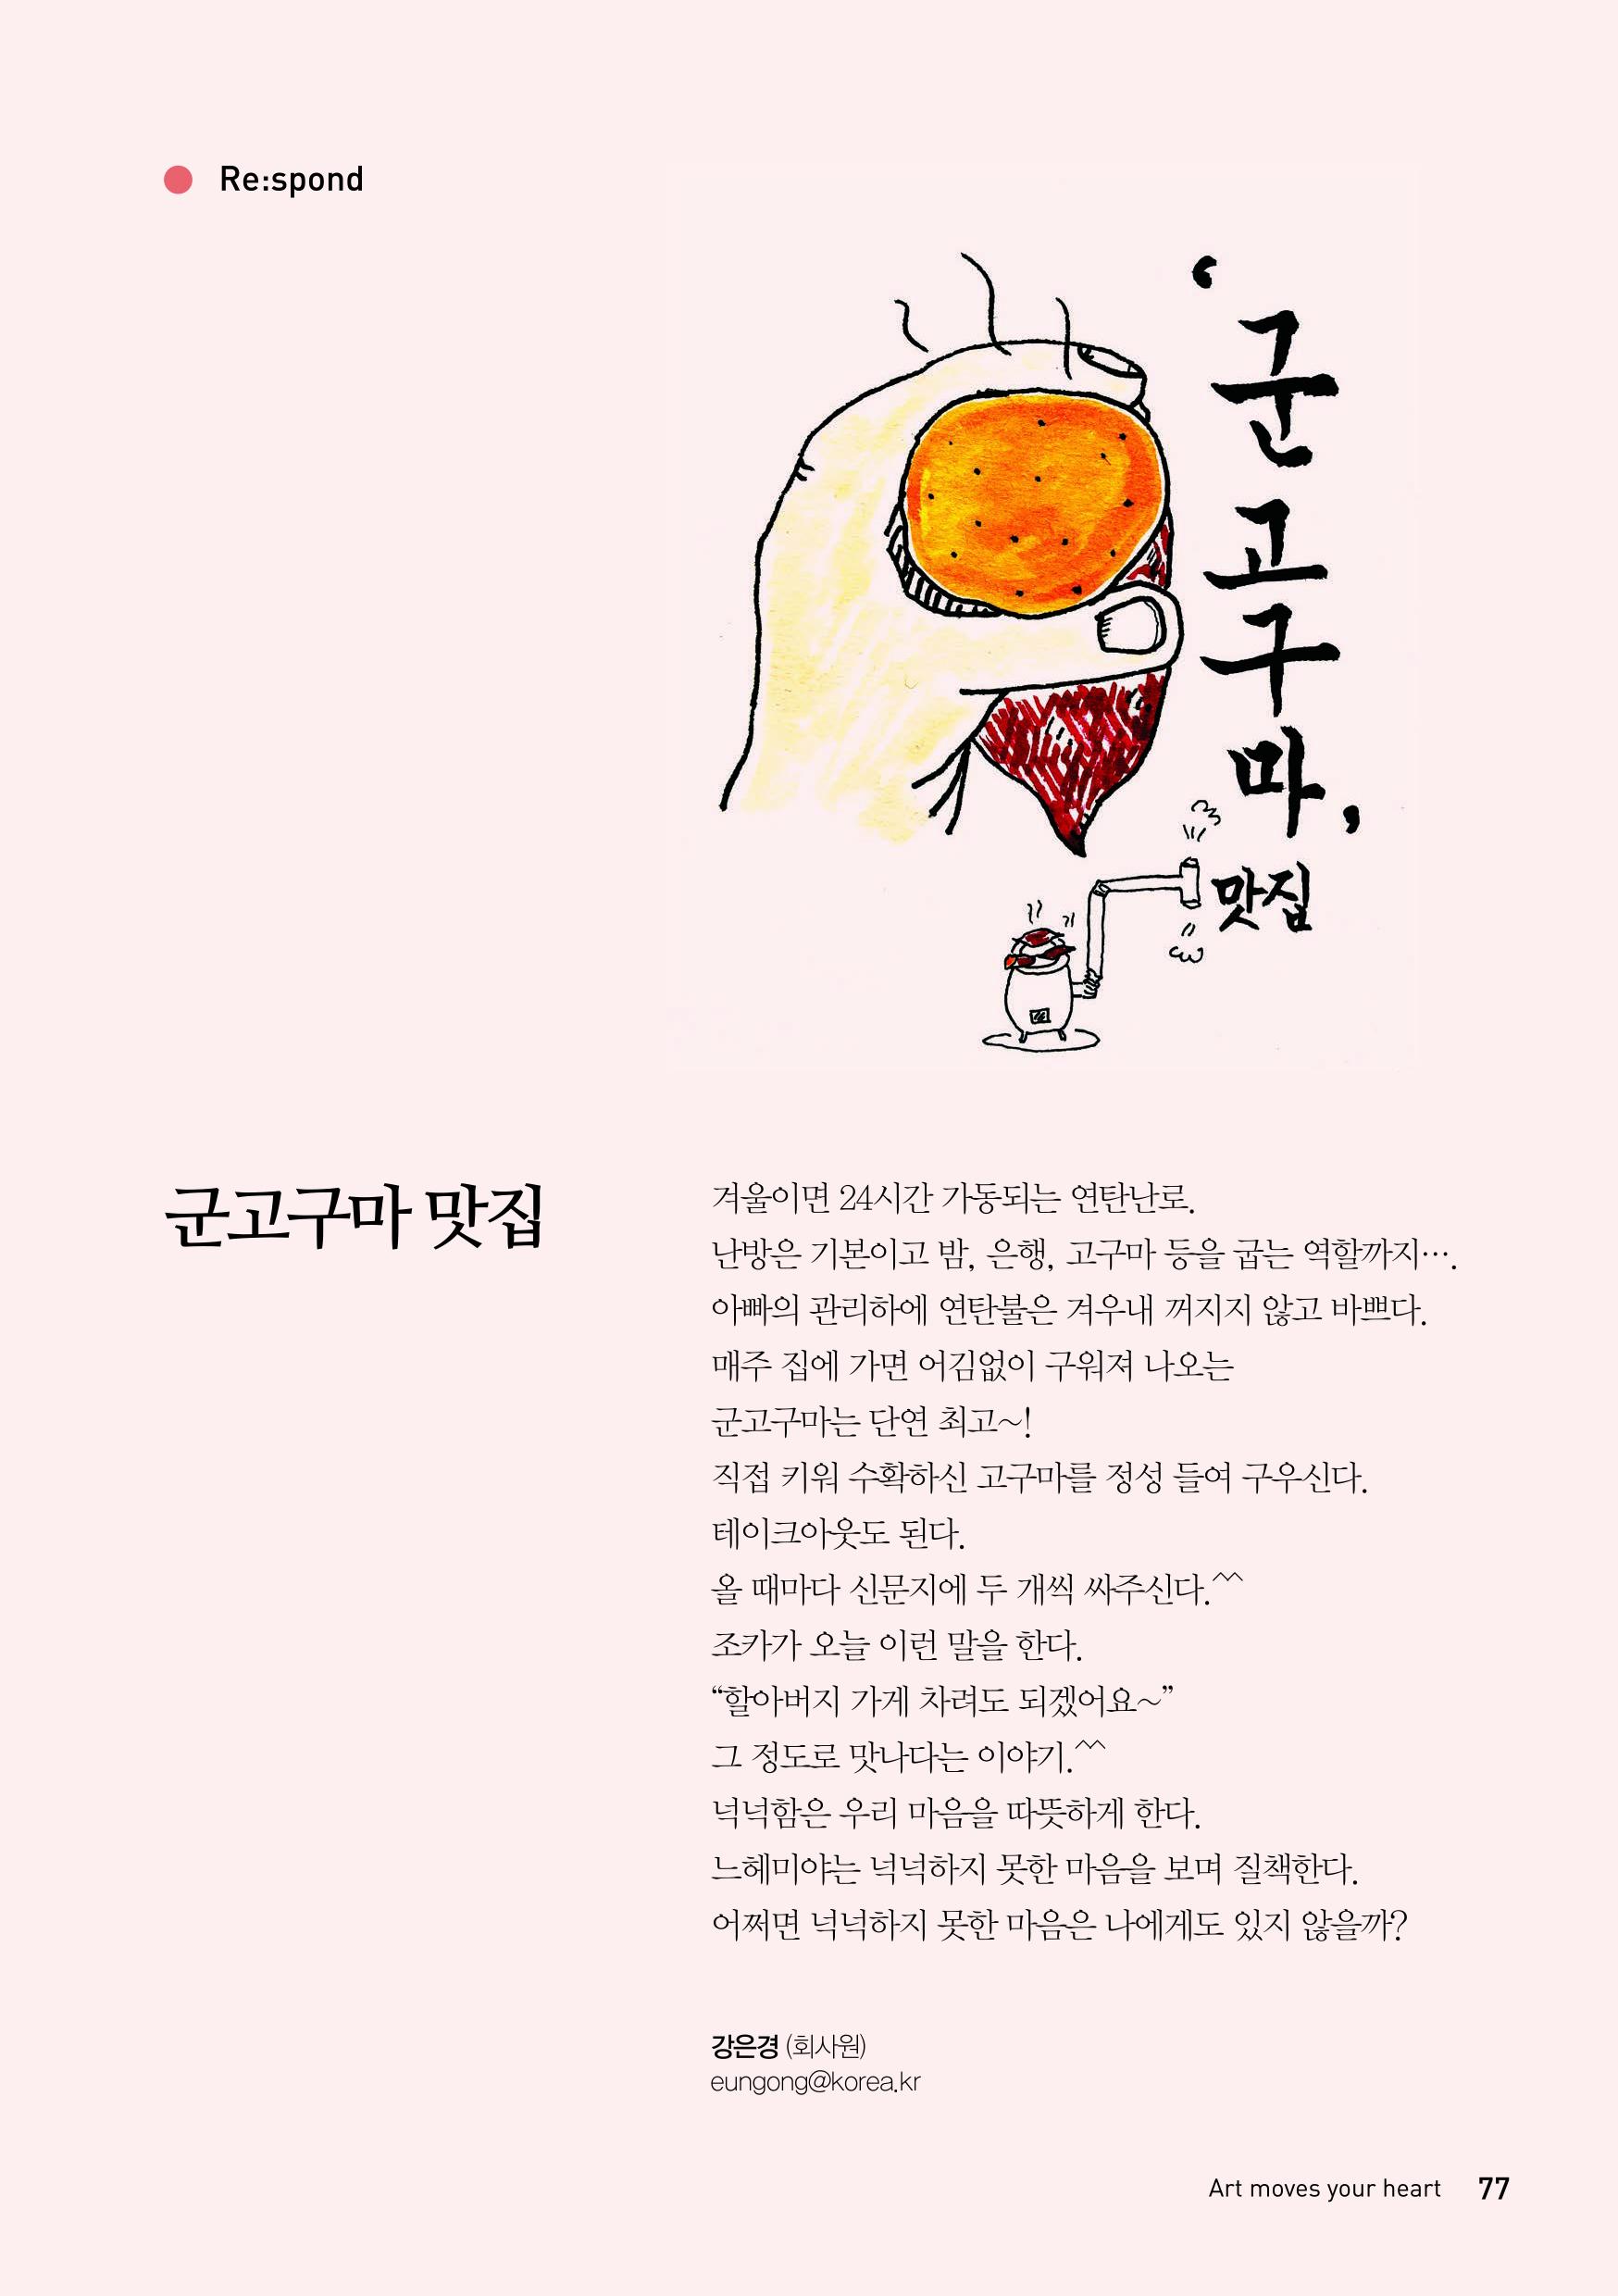 Re:spond
‘군고구마,
맛집
군고구마 맛집
겨울이면 24시간 가동되는 연탄난로.
난방은 기본이고 밤, 은행, 고구마 등을 굽는 역할까지….
아빠의 관리하에 연탄불은 겨우내 꺼지지 않고 바쁘다.
매주 집에 가면 어김없이 구워져 나오는
군고구마는 단연 최고~!
직접 키워 수확하신 고구마를 정성 들여 구우신다.
테이크아웃도 된다.
올 때마다 신문지에 두 개씩 싸주신다.^^
조카가 오늘 이런 말을 한다.
“할아버지 가게 차려도 되겠어요~”
그 정도로 맛나다는 이야기.^^
넉넉함은 우리 마음을 따뜻하게 한다.
느헤미야는 넉넉하지 못한 마음을 보며 질책한다.
어쩌면 넉넉하지 못한 마음은 나에게도 있지 않을까?
강은경 (회사원)
eungong@korea.kr
Art moves your heart 77